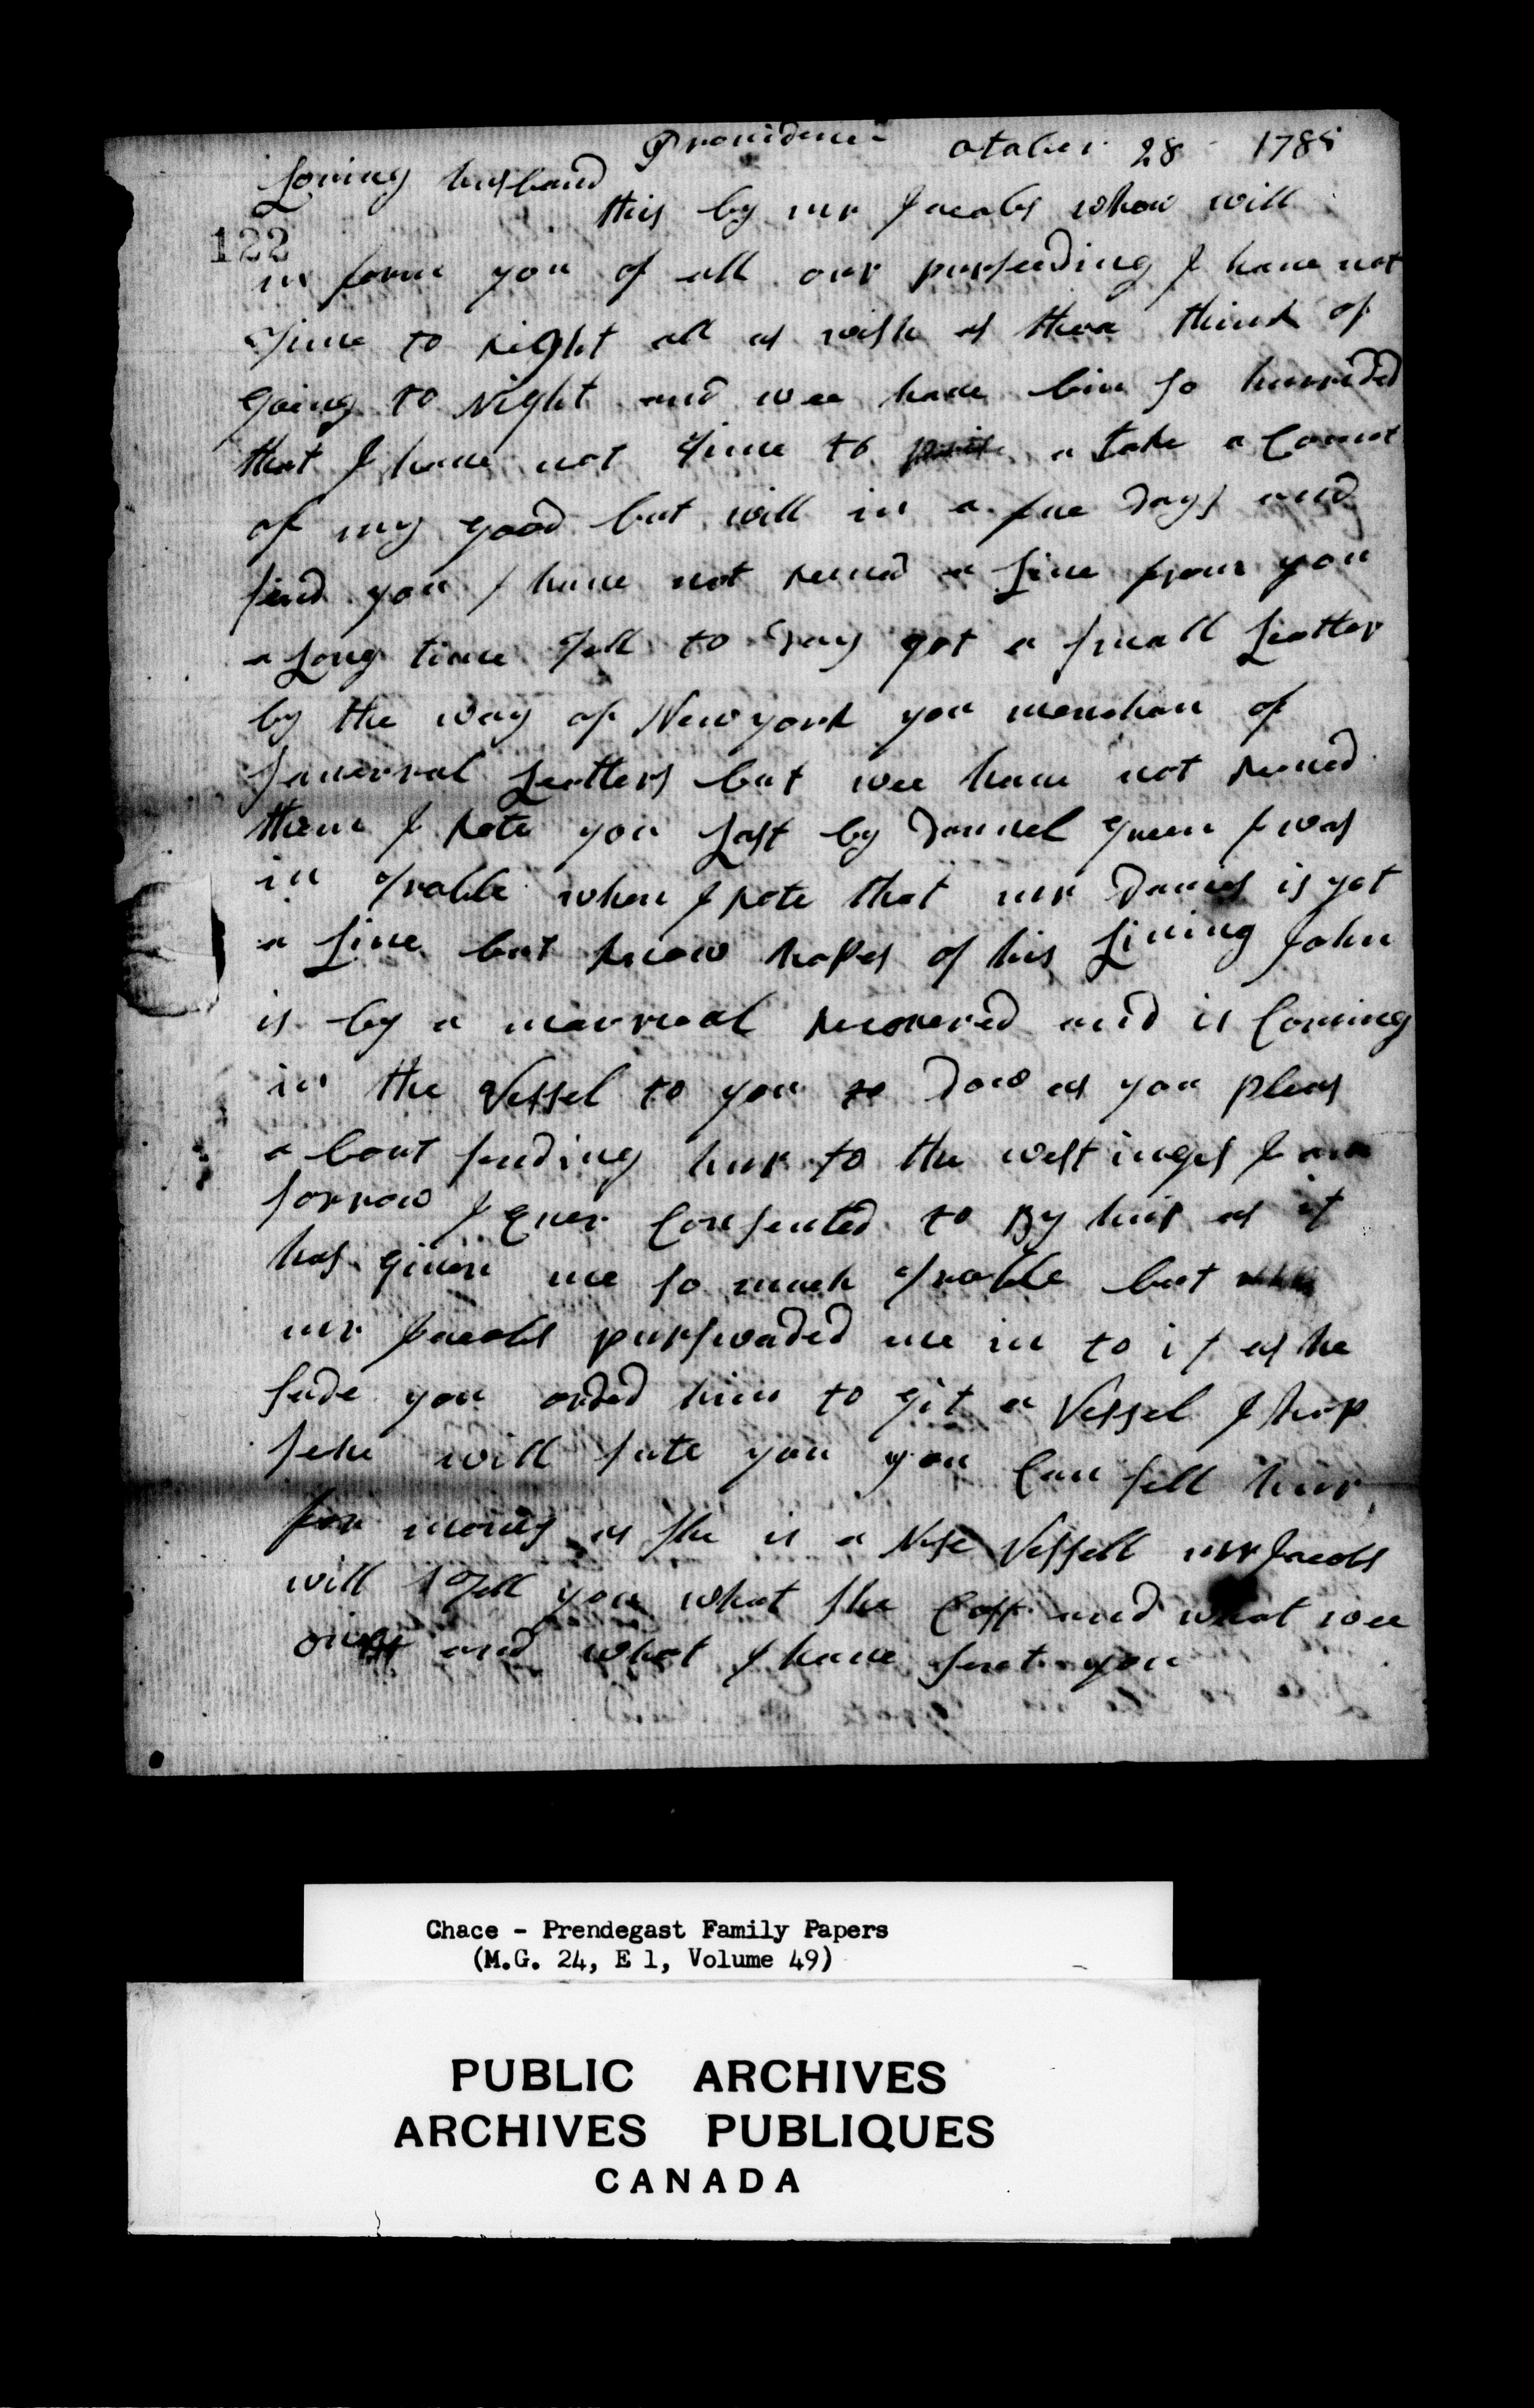 Providence otober 28 1785
Loving husband
this by mr Jacobs whow will
122
in form you of all our purseeding I have not
Time to right all as wish as thea think of
going to Night and wee have bin so hurrided
that I have not Time to a take a Counnt
of my good but will in a fue Days and
send you I have not reseved a Line from you
a Long time Tell to Day got a small Leatter
by the way of Newyork you menshon of
saverral Leatters but wee have not reseved
them I rote you Last by Danuel green I was
in Trobble when I rote that mr Daves is yet
a Live but know hopes of his Living John
is by a marrical recovered and is Coming
in the Vessel to you to Dow as you pleas
a bout sending hur to the westinges I am
sorrow I Ever Consented to By hur as it
has given me so much Trobble but
mr Jacobs purswaded me in to it as he
sade you orded him to git a Vessel I hop
sehe will sute you you Can sell hur
for money as she is a Nise Vessell mr Jacobs
will Tell you what she Cost and what wee
and what I have sent you
Chace - Prendegast Family Papers
(M.G. 24, E 1, Volume 49)
PUBLIC ARCHIVES
ARCHIVES PUBLIQUES
CANADA